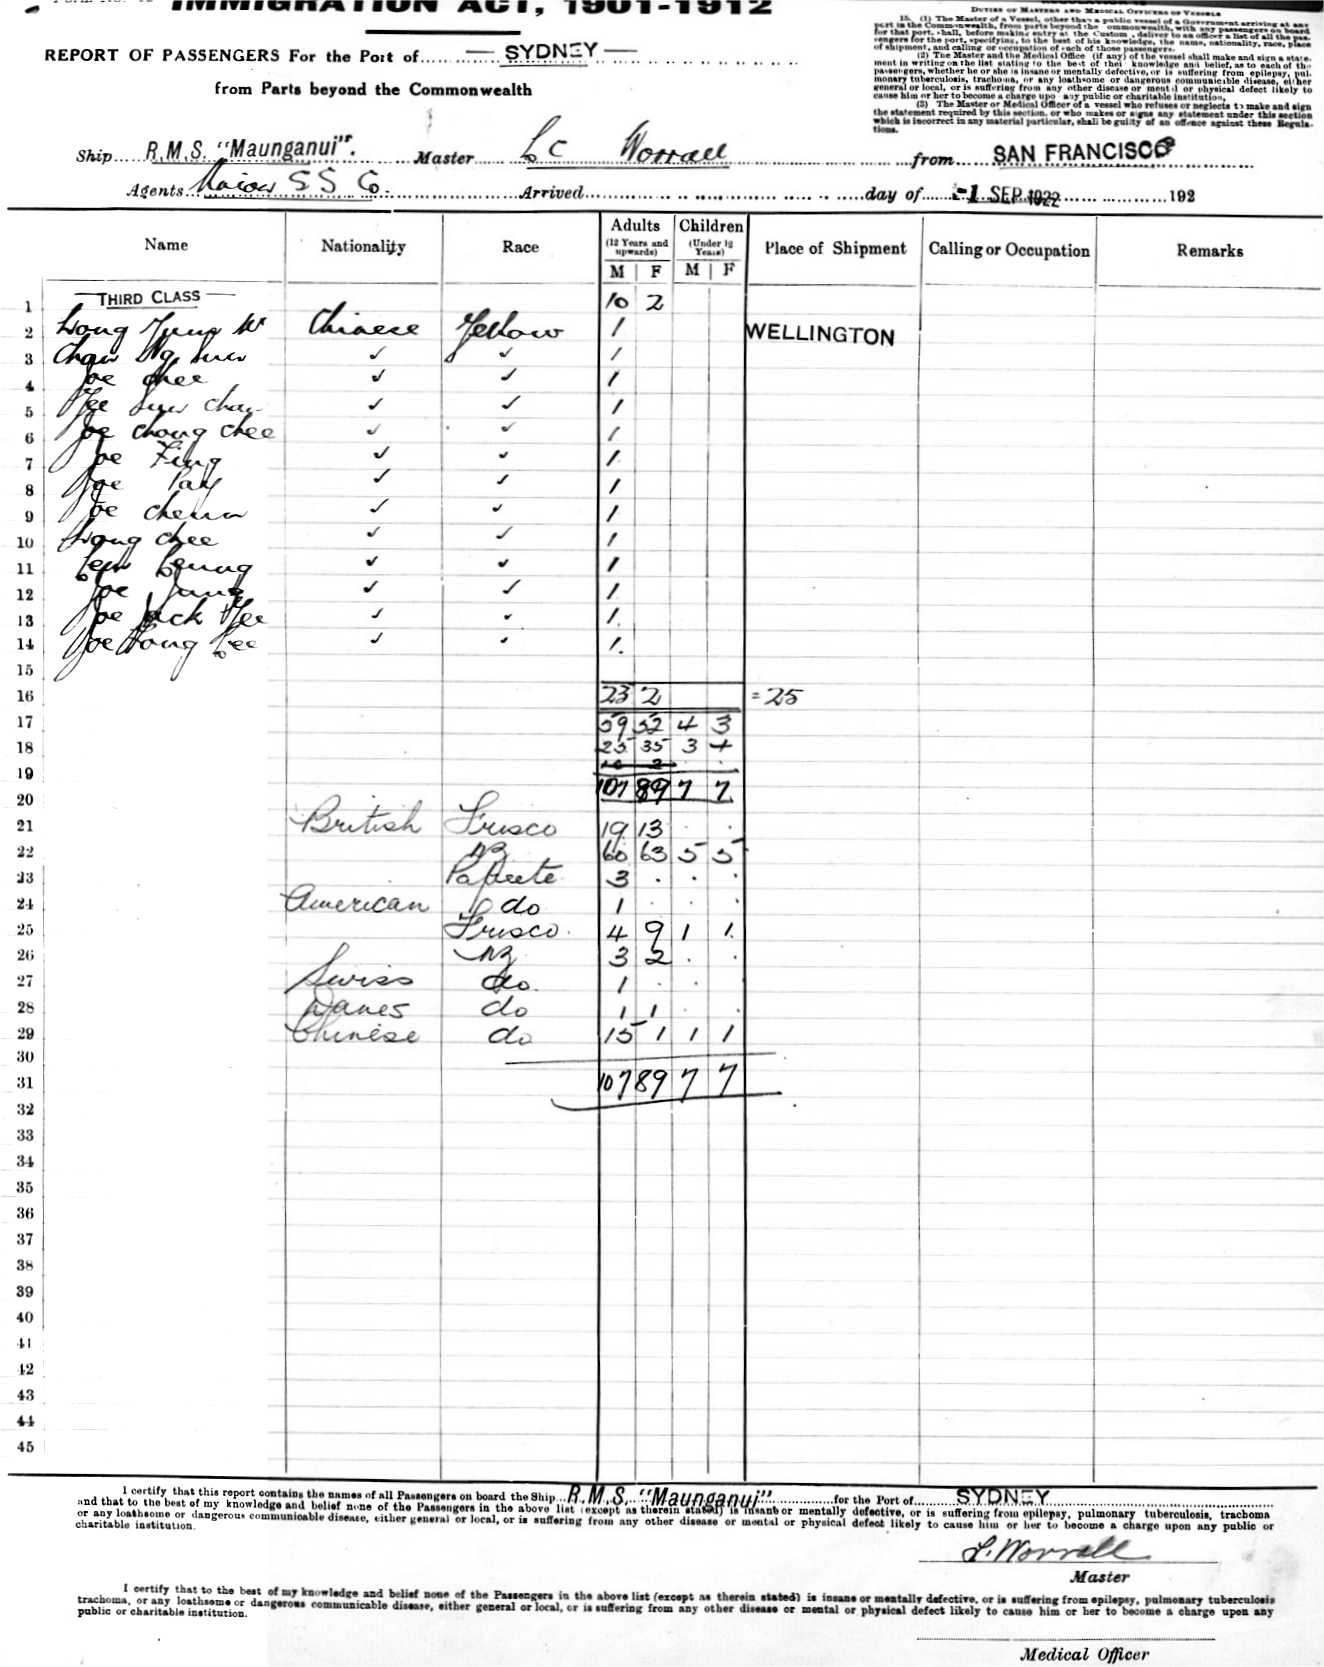 IMMIGRATION ACT, 1901-1912
REPORT OF PASSENGERS For the Port of SYDNEY
from Parts beyond the Commonwealth
DUTIES OF MASTERS AND MEDICAL OFFICERS OF VESSELS
15. (1) The Master of a Vessel, other than a public vessel of a Government arriving at any
port in the Commonwealth, from parts beyond the ommonwealth, with any passengers on board
for that port, shall, before making entry at the Custom , deliver to an officer a list of all the pas-
sengers for the port, specifying, to the best of his knowledge, the name, nationality, race, place
of shipment, and calling or occupation of each of those passengers.
(2) The Master and the Medical Office (if any) of the vessel shall make and sign a state-
ment in writing on the list stating to the best of thei knowledge and belief, as to each of the
passengers, whether he or she is insane or mentally defective, or is suffering from epilepsy, pul-
monary tuberculosis, trachoma, or any loathsome or dangerous communicable disease, either
general or local, or is suffering from any other disease or mental or physical defect likely to
cause him or her to become a charge upon any public or charitable institution,
(3) The Master or Medical Officer of a vessel who refuses or neglects to make and sign
the statement required by this section, or who makes or signs any statement under this section
which is incorrect in any material particular, shall be guilty of an offence against these Regula-
tions.
Ship R.M.S. "Maunganui". Master L C Worrall from SAN FRANCISCO
Agents Union S S Co. Arrived day of -1 SEP 1922 192
Name Nationality Race Adults (12 Years and upwards) M F Children (Under 12 Years) M F Place of Shipment Calling or Occupation Remarks
1 THIRD CLASS 10 2
2 Chinese Yellow 1 WELLINGTON
3 ✓ ✓ 1
4 Joe Chee ✓ ✓ 1
5 Yee Sun Chan ✓ ✓ 1
6 Joe Chong Chee ✓ ✓ 1
7 Joe Fing ✓ ✓ 1
8 Joe Pay ✓ ✓ 1
9 Joe ✓ ✓ 1
10 Wong Chee ✓ ✓ 1
11 Lew Leung ✓ ✓ 1
12 Joe Jung ✓ ✓ 1
13 Joe Jack Yee ✓ ✓ 1
14 Joe Fong Lee ✓ ✓ 1
15
16 23 2 = 25
17 59 52 4 3
18 25 35 3 4
19
20 107 89 7 7
21 British Frisco 19 13
22 NZ 60 63 5 5
23 Papeete 3
24 American do 1
25 Frisco 4 9 1 1
26 NZ 3 2
27 Swiss do 1
28 Danes do 1 1
29 Chinese do 15 1 1 1
30
31 107 89 7 7
32
33
34
35
36
37
38
39
40
41
42
43
44
45
I certify that this report contains the names of all Passengers on board the Ship R.M.S. "Maunganui" for the Port of SYDNEY
and that to the best of my knowledge and belief none of the Passengers in the above list (except as therein stated) is insane or mentally defective, or is suffering from epilepsy, pulmonary tuberculosis, trachoma
or any loathsome or dangerous communicable disease, either general or local, or is suffering from any other disease or mental or physical defect likely to cause him or her to become a charge upon any public or
charitable institution.
L. Worrall
Master
I certify that to the best of my knowledge and belief none of the Passengers in the above list (except as therein stated) is insane or mentally defective, or is suffering from epilepsy, pulmonary tuberculosis
trachoma, or any loathsome or dangerous communicable disease, either general or local, or is suffering from any other disease or mental or physical defect likely to cause him or her to become a charge upon any
public or charitable institution.
Medical Officer